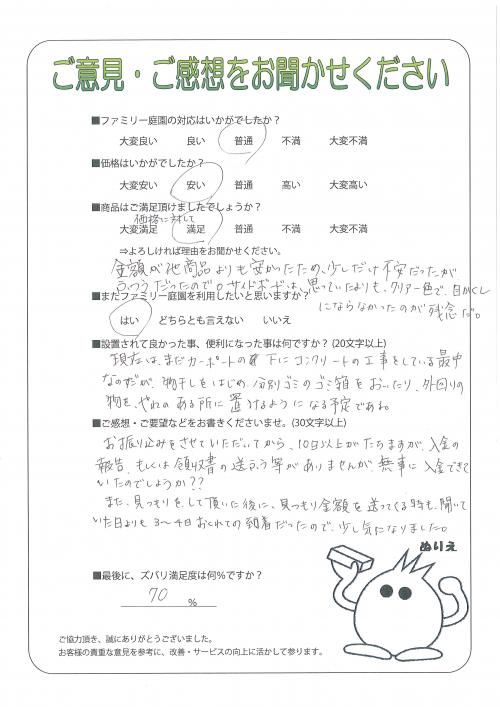 ご意見・ご感想をお聞かせください
■ファミリー庭園の対応はいかがでしたか？
大変良い 良い 普通 不満 大変不満
■価格はいかがでしたか？
大変安い 安い 普通 高い 大変高い
■商品はご満足頂けましたでしょうか？
価格に対して
大変満足 満足 普通 不満 大変不満
⇒よろしければ理由をお聞かせください。
金額が他商品よりも安かったため、少しだけ不安だったが
ふつうだったので。サイドボードは、思っていたよりも、クリアー色で、目かくし
にならなかったのが残念だ。
■またファミリー庭園を利用したいと思いますか？
はい どちらとも言えない いいえ
■設置されて良かった事、便利になった事は何ですか？(20文字以上)
現在は、まだカーポートの下にコンクリートの工事をしている最中
なのだが、物干しをはじめ、分別ゴミのゴミ箱をおいたり、外回りの
物を、やねのある所に置けるようになる予定である。
■ご感想・ご要望などをお書きくださいませ。(30文字以上)
お振り込みをさせていただいてから、10日以上がたちますが、入金の
報告、もしくは領収書の送ふう等がありませんが、無事に入金できて
いたのでしょうか??
また、見つもりをして頂いた後に、見つもり金額を送ってくる時も、聞いて
いた日よりも3〜4日おくれての到着だったので、少し気になりました。
ぬりえ
■最後に、ズバリ満足度は何％ですか？
70 ％
ご協力頂き、誠にありがとうございました。
お客様の貴重な意見を参考に、改善・サービスの向上に活かして参ります。